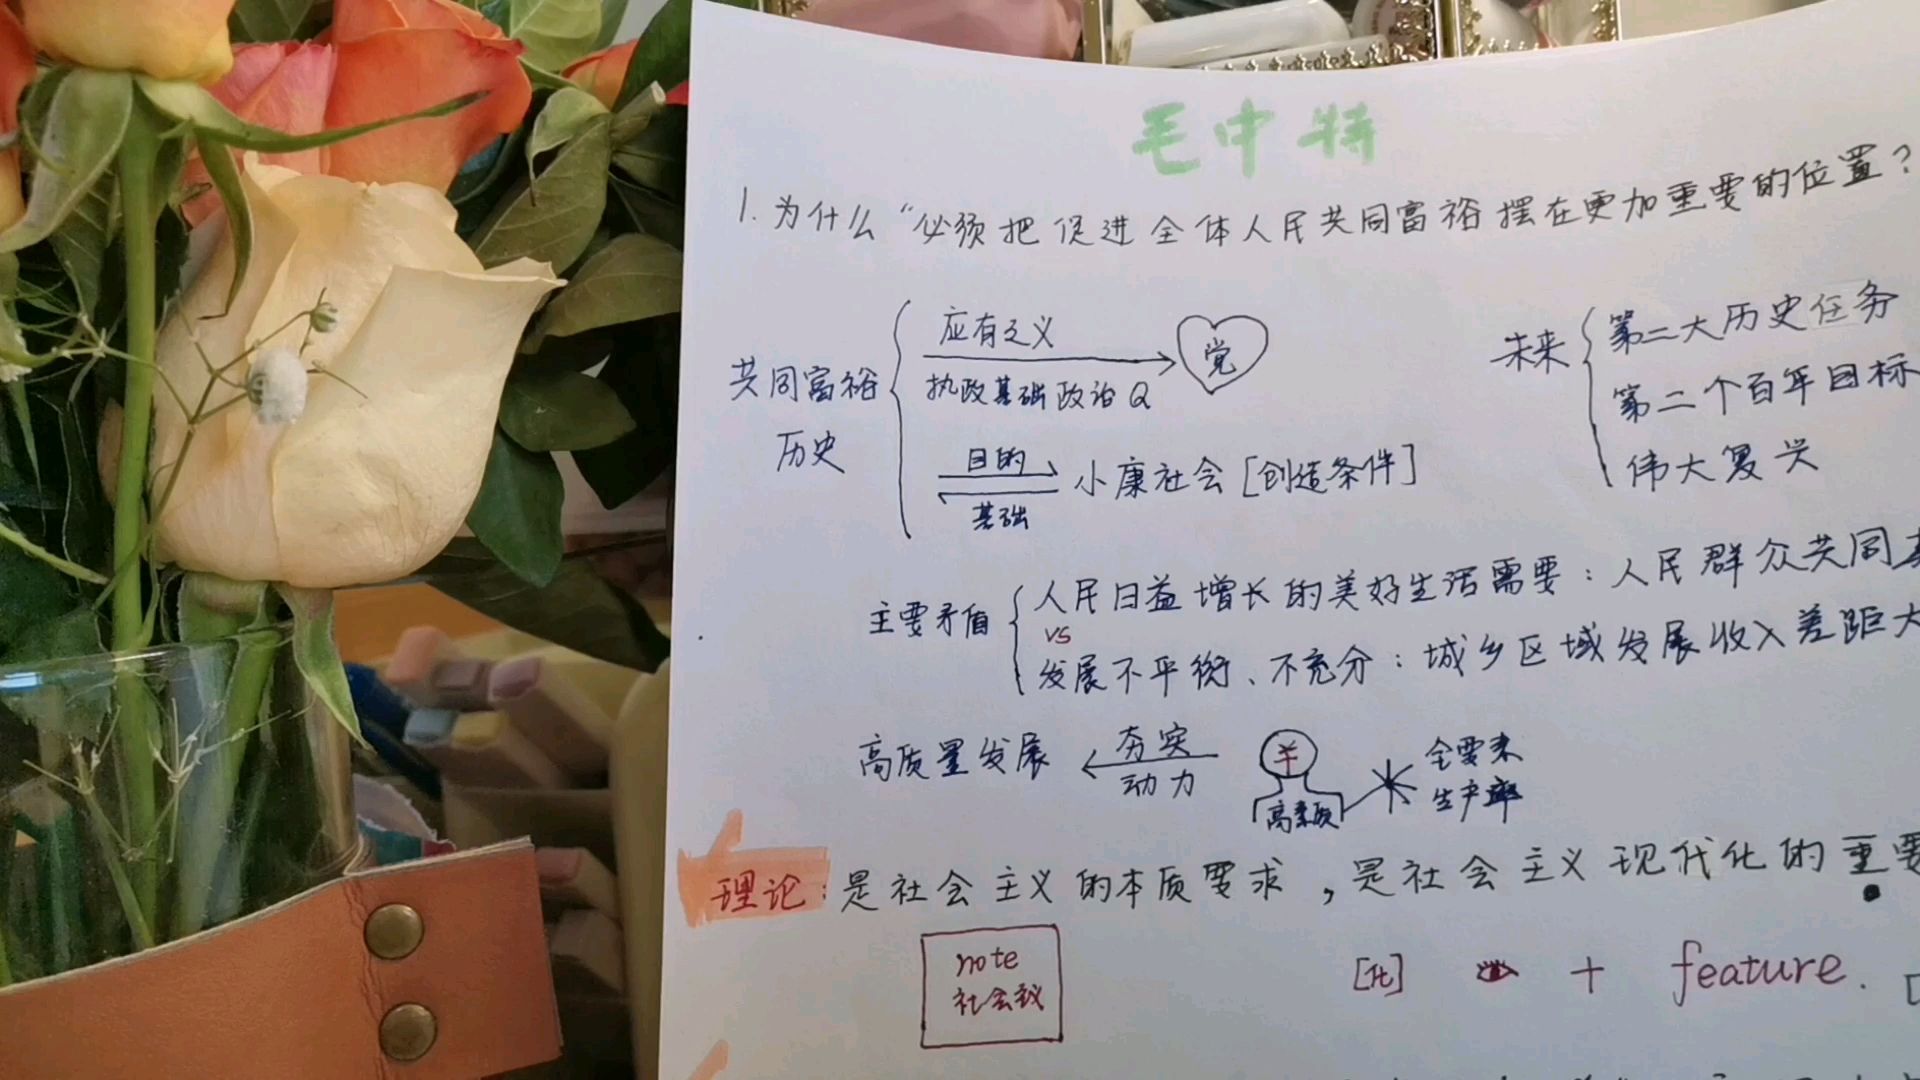 毛中特
1. 为什么“必须把促进全体人民共同富裕摆在更加重要的位置?
共同富裕
历史
应有之义
执政基础政治Q
党
目的
基础
小康社会[创造条件]
未来
第二大历史任务
第二个百年目标
伟大复兴
主要矛盾
人民日益增长的美好生活需要:人民群众共同
vs
发展不平衡、不充分:城乡区域发展收入差距大
高质量发展
夯实
动力
羊
高素质
全要素
生产率
理论:是社会主义的本质要求,是社会主义现代化的重要
note
社会议
[化] + feature.